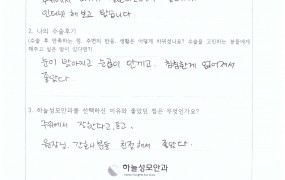 인터넷 해보고 왔습니다.
2. 나의 수술후기
(수술 후 만족하는 점, 주변의 반응, 생활은 어떻게 바뀌셨나요? 수술을 고민하는 분들에게
해주고 싶은 말이 있다면?)
눈이 밝아지고 눈곱이 안끼고, 침침한게 없어져서
좋았다.
3. 하늘성모안과를 선택하신 이유와 좋았던 점은 무엇인가요?
주위에서 잘한다고, 듣고,
원장님, 간호사분들 친절해서 좋았다.
하늘성모안과